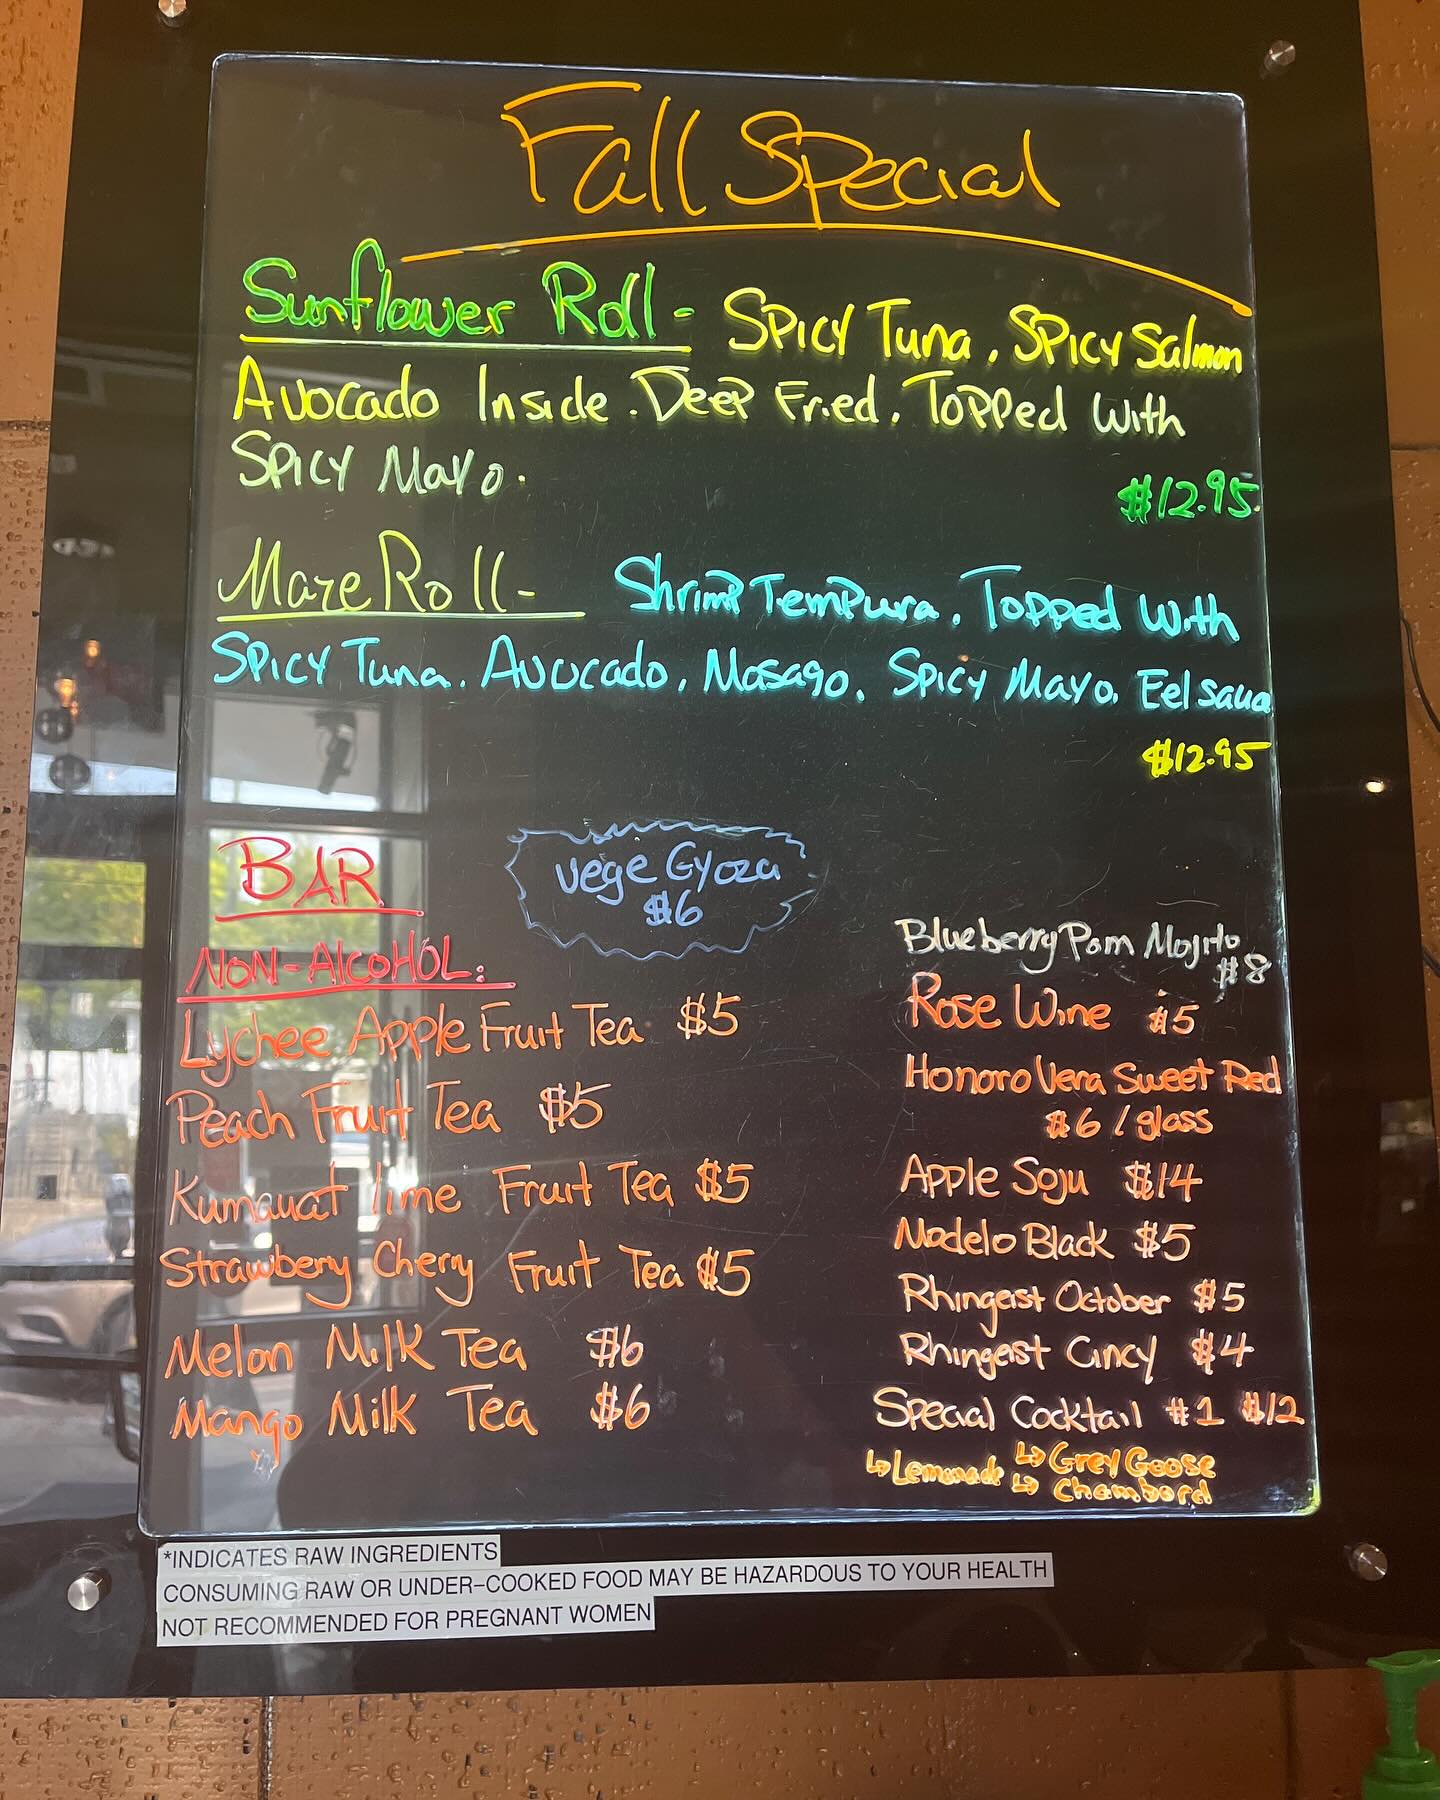 Fall Special
Sunflower Roll - Spicy Tuna, Spicy Salmon
Avocado Inside. Deep Fried. Topped With
Spicy Mayo.
$12.95
Maze Roll - Shrimp Tempura. Topped With
Spicy Tuna. Avocado, Masago, Spicy Mayo, Eel saua
$12.95
Vege Gyoza
$6
BAR
NON-AlcoHOL:
Lychee Apple Fruit Tea $5
Peach Fruit Tea $5
Kumauat lime Fruit Tea $5
Strawbery Cherry Fruit Tea $5
Melon Milk Tea $6
Mango Milk Tea $6
Blueberry Pom Mojito
$8
Rose Wine $5
Honoro Vera Sweet Red
$6 / glass
Apple Soju $14
Modelo Black $5
Rhingeist October $5
Rhingeist Cincy $4
Special Cocktail #1 $12
↳ Lemonade ↳ Grey Goose
↳ Chambord
*INDICATES RAW INGREDIENTS
CONSUMING RAW OR UNDER-COOKED FOOD MAY BE HAZARDOUS TO YOUR HEALTH
NOT RECOMMENDED FOR PREGNANT WOMEN